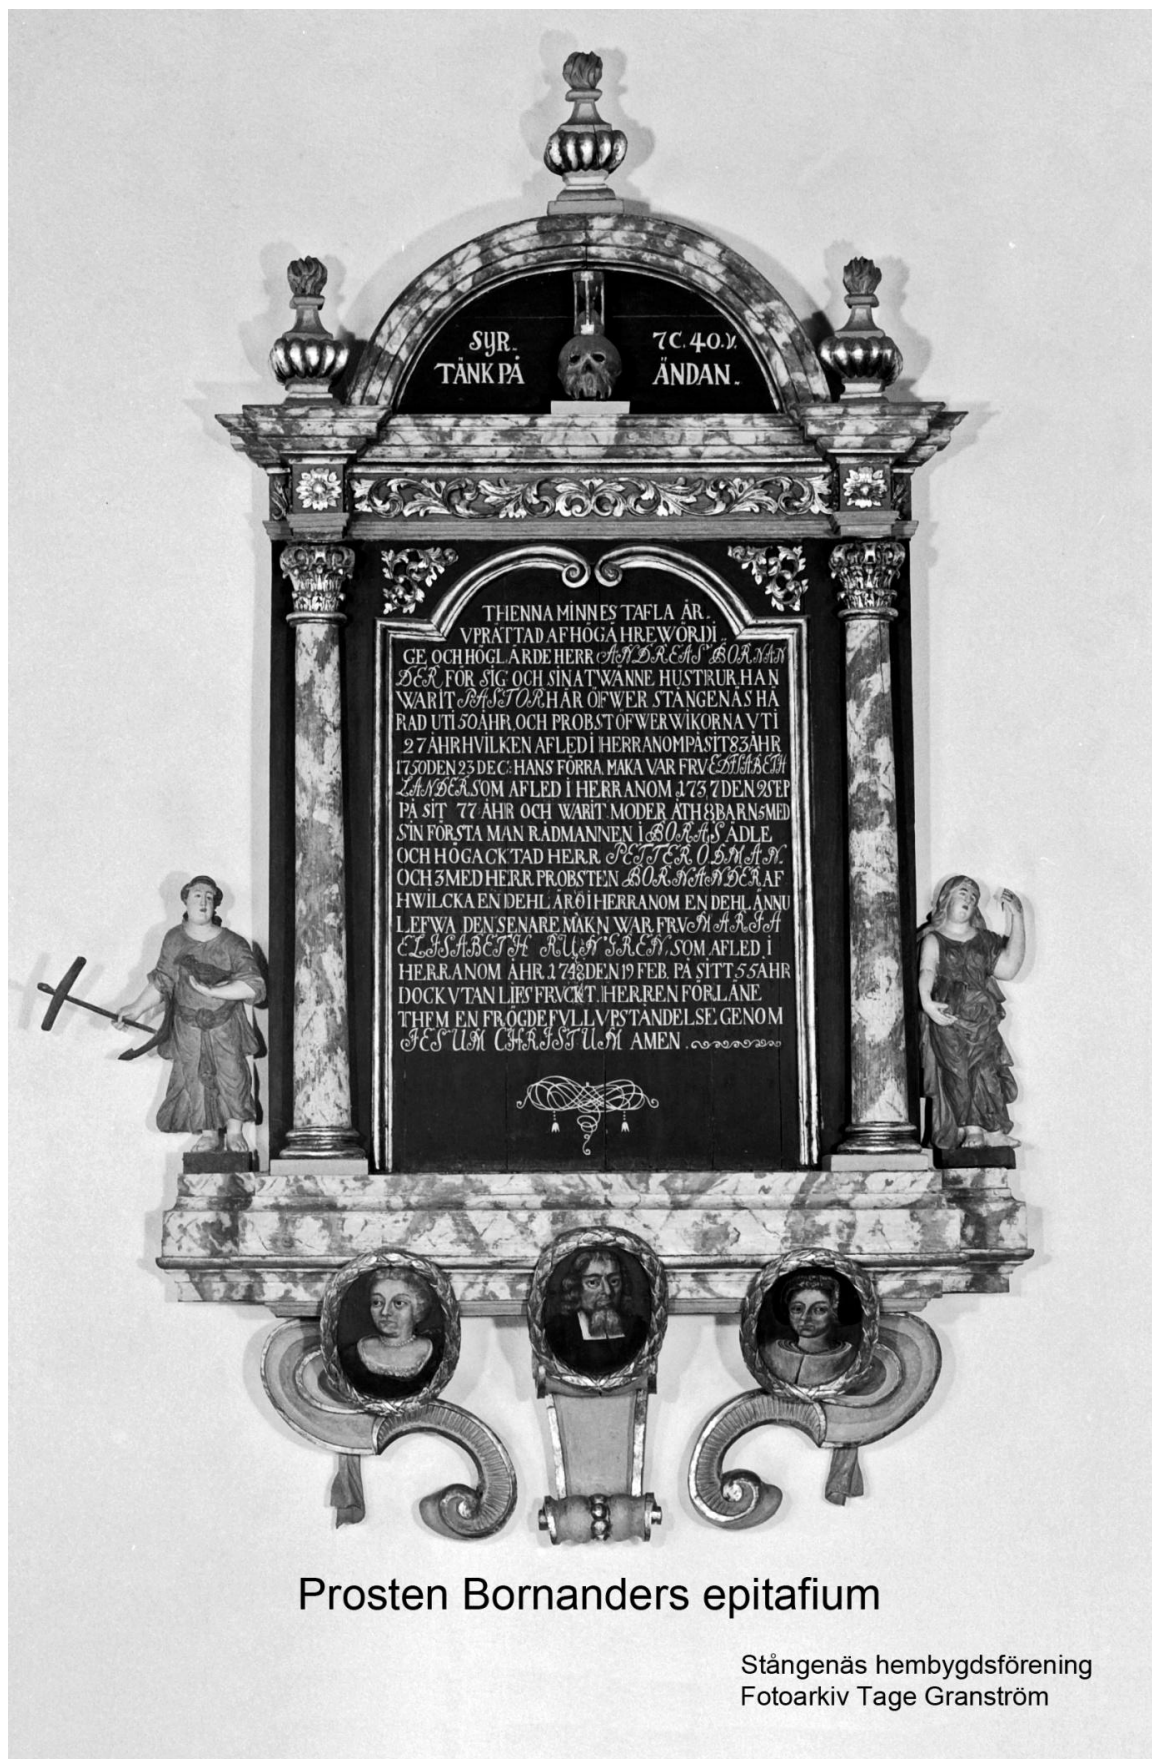 SYR.. 7C.40.V.
TÄNK PÅ ÄNDAN..
THENNA MINNES TAFLA ÄR.
VPRÄTTAD AF HÖGÄHREWÖRDI..
GE OCH HÖGLÄRDE HERR ANDREAS BORNAN
DER FÖR SIG OCH SINA TWÄNNE HUSTRUR. HAN
WARIT PASTOR HÄR ÖFWER STÅNGENÄS HÄ
RAD UTI 50 ÅHR, OCH PROBST ÖFWER WIKORNA VTI
27 ÅHR HVILKEN AFLED I HERRANOM PÅ SIT 83 ÅHR
1750 DEN 23 DEC: HANS FÖRRA MAKA VAR FRV
LANDER SOM AFLED I HERRANOM 1737 DEN 9 SEP
PÅ SIT 77 ÅHR OCH WARIT MODER ÅTH 8 BARN 5 MED
SIN FÖRSTA MAN RÅDMANNEN I BORÅS ÄDLE
OCH HÖGACKTAD HERR PETTER ODMAN.
OCH 3 MED HERR PROBSTEN BORNANDER AF
HWILCKA EN DEHL ÄRO I HERRANOM EN DEHL ÄNNU
LEFWA. DEN SENARE WAR FRV MARIA
ELISABETH RUNGREN, SOM AFLED I
HERRANOM ÅHR 1748 DEN 19 FEB. PÅ SITT 55 ÅHR
DOCK VTAN LIFSFRVCKT. HERREN FÖRLÄNE
THEM EN FRÖGDEFVLL VPSTÅNDELSE. GENOM
JESUM CHRISTUM AMEN.
Prosten Bornanders epitafium
Stångenäs hembygdsförening
Fotoarkiv Tage Granström